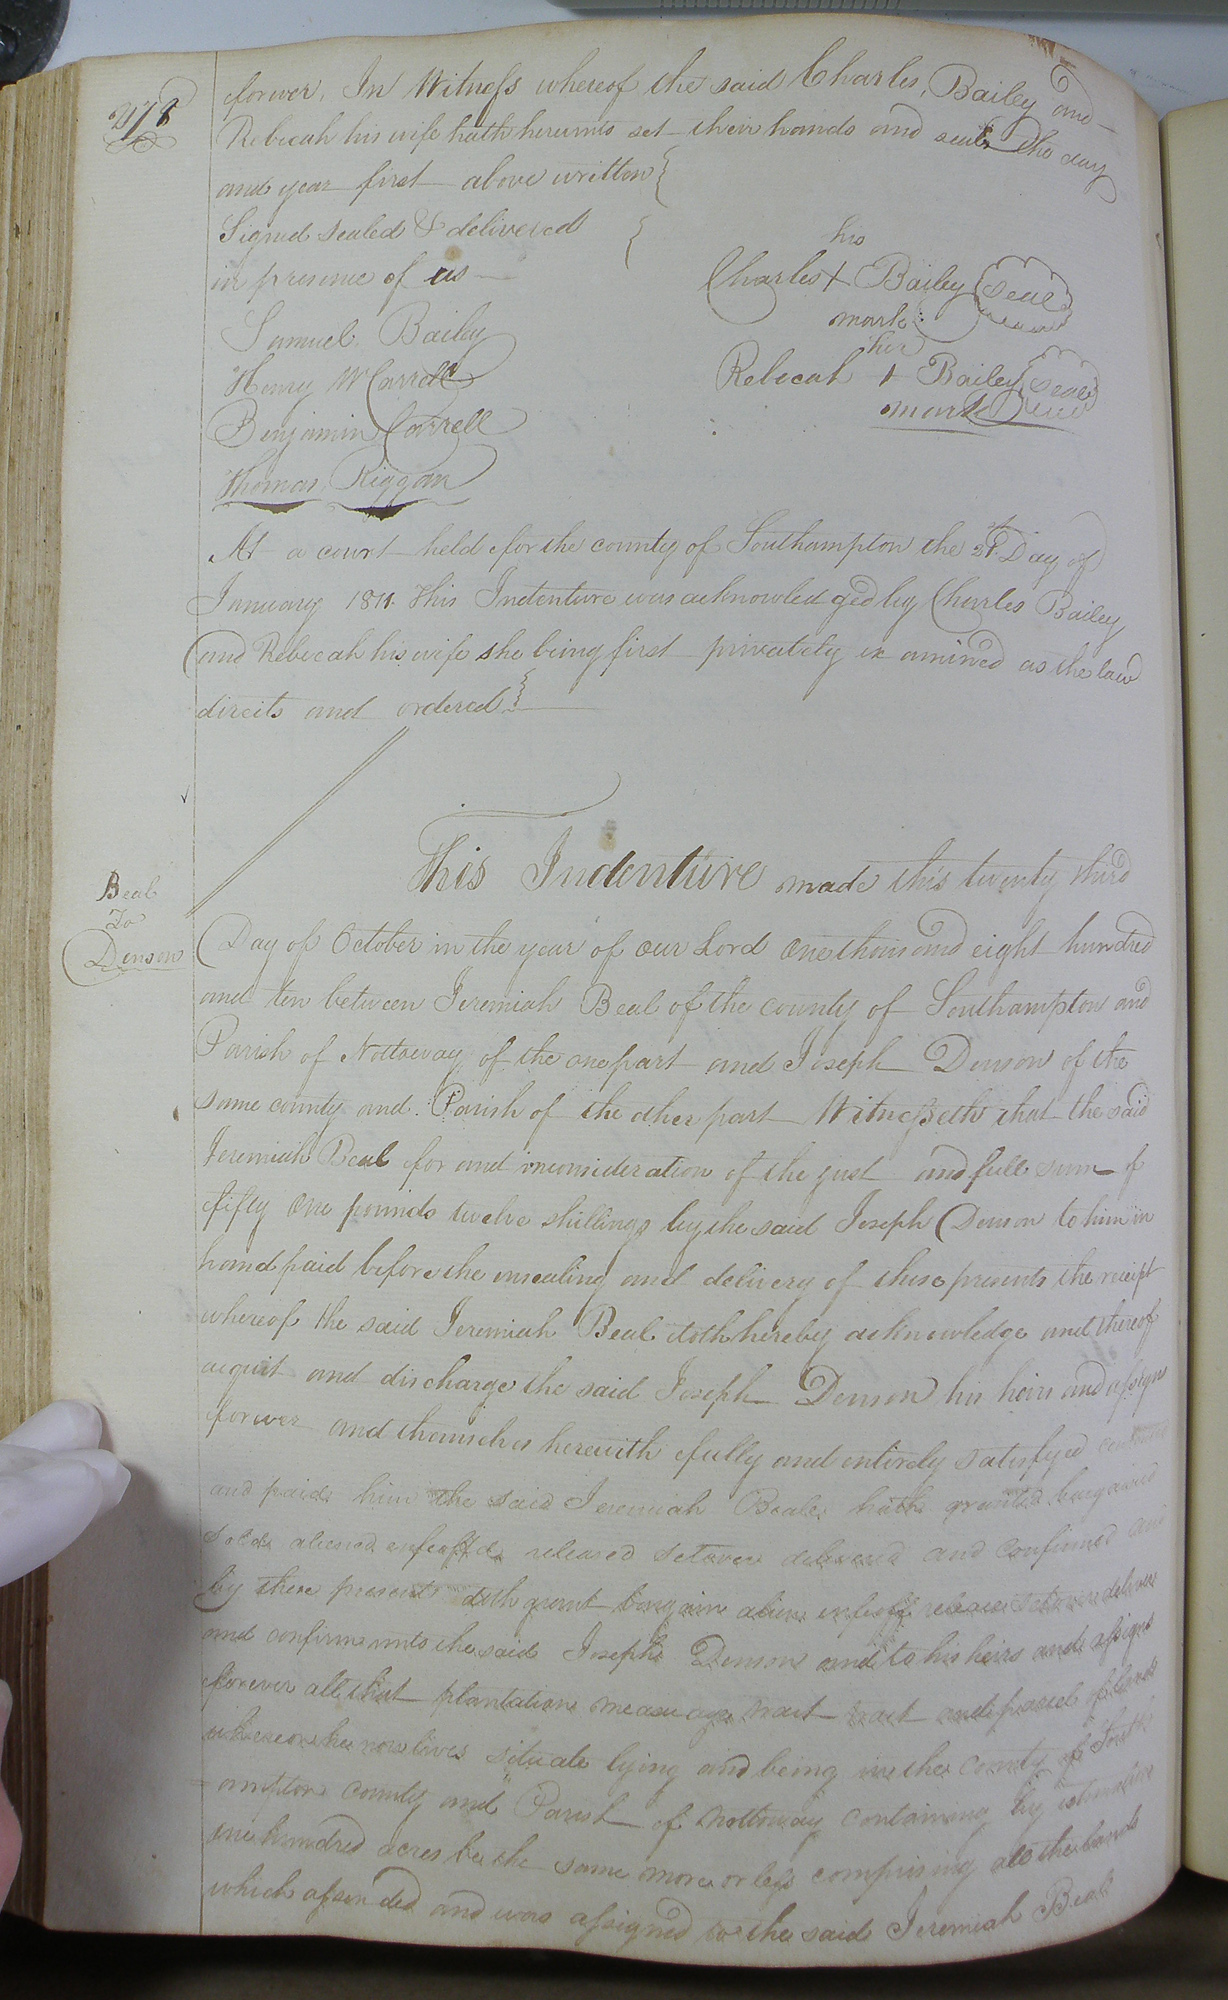 278
forever. In Witness whereof the said Charles Bailey and
Rebecah his wife hath hereunto set their hands and seals the day
and year first above written
Signed sealed & delivered
in presence of us
his
Charles + Bailey Seal
mark
Samuel Bailey
her
Rebecah + Bailey Seal
mark
Henry W Carrell
Benjamin Correll
Thomas Riggan
At a court held for the county of Southampton the 21st Day of
January 1811. This Indenture was acknowledged by Charles Bailey
and Rebecah his wife she being first privately examined as the law
directs and ordered
Beal
To
Denson
This Indenture made this twenty third
Day of October in the year of our Lord one thousand eight hundred
and ten between Jeremiah Beal of the county of Southampton and
Parish of Nottoway of the one part and Joseph Denson of the
same county and Parish of the other part Witnesseth that the said
Jeremiah Beal for and inconsideration of the just and full sum of
fifty one pounds twelve shillings by the said Joseph Denson to him in
hand paid before the ensealing and delivery of these presents the receipt
whereof the said Jeremiah Beal doth hereby acknowledge and thereof
acquit and discharge the said Joseph Denson his heirs and assigns
forever and themselves herewith fully and entirely satisfyed contented
and paid him the said Jeremiah Beale hath granted bargained
sold aliened enfeoffd released setover delivered and confirmed and
by these presents doth grant bargain aliene enfeoff release setover deliver
and confirm unto the said Joseph Denson and to his heirs and assigns
forever all that plantation measuage tract and parcel of land
whereon he now lives situate lying and being in the county of South
=ampton county and Parish of Nottoway containing by estimation
one hundred acres be the same more or less comprising all the lands
which and was assigned to the said Jeremiah Beal